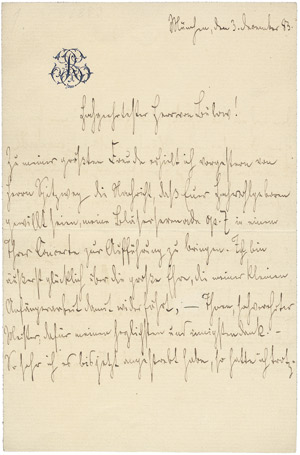 München, den 3. Dezember 83.
Hochgeehrtester Herr von Bülow!
Zu meiner größten Freude erhielt ich vorgestern von
Herrn Spitzweg die Nachricht, daß Euer Hochwohlgeboren
gewillt seien, meine Bläserserenade op. 7 in einem
Ihrer Concerte zur Aufführung zu bringen. Ich bin
äußerst glücklich über die große Ehre, die meiner kleinen
Anfängerarbeit damit widerfährt, — Ihnen, hochverehrter
Meister, dafür meinen herzlichsten und innigsten Dank. –
So sehr ich es bis jetzt angestrebt habe, so hatte ich trotz-